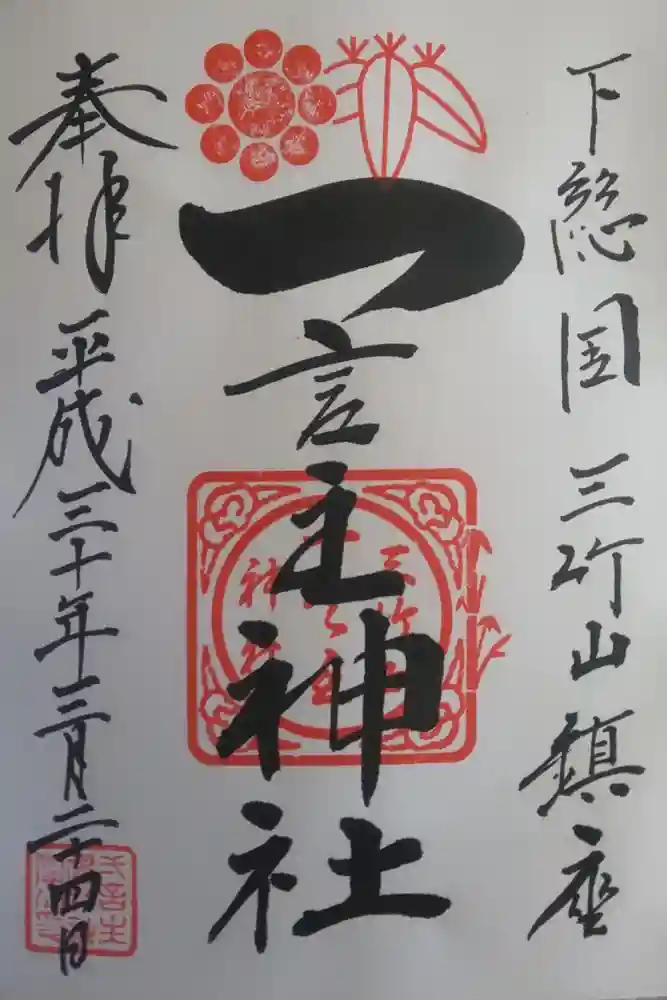 下総国 三竹山 鎮座
一言主神社
奉拝 平成三十年三月二十四日